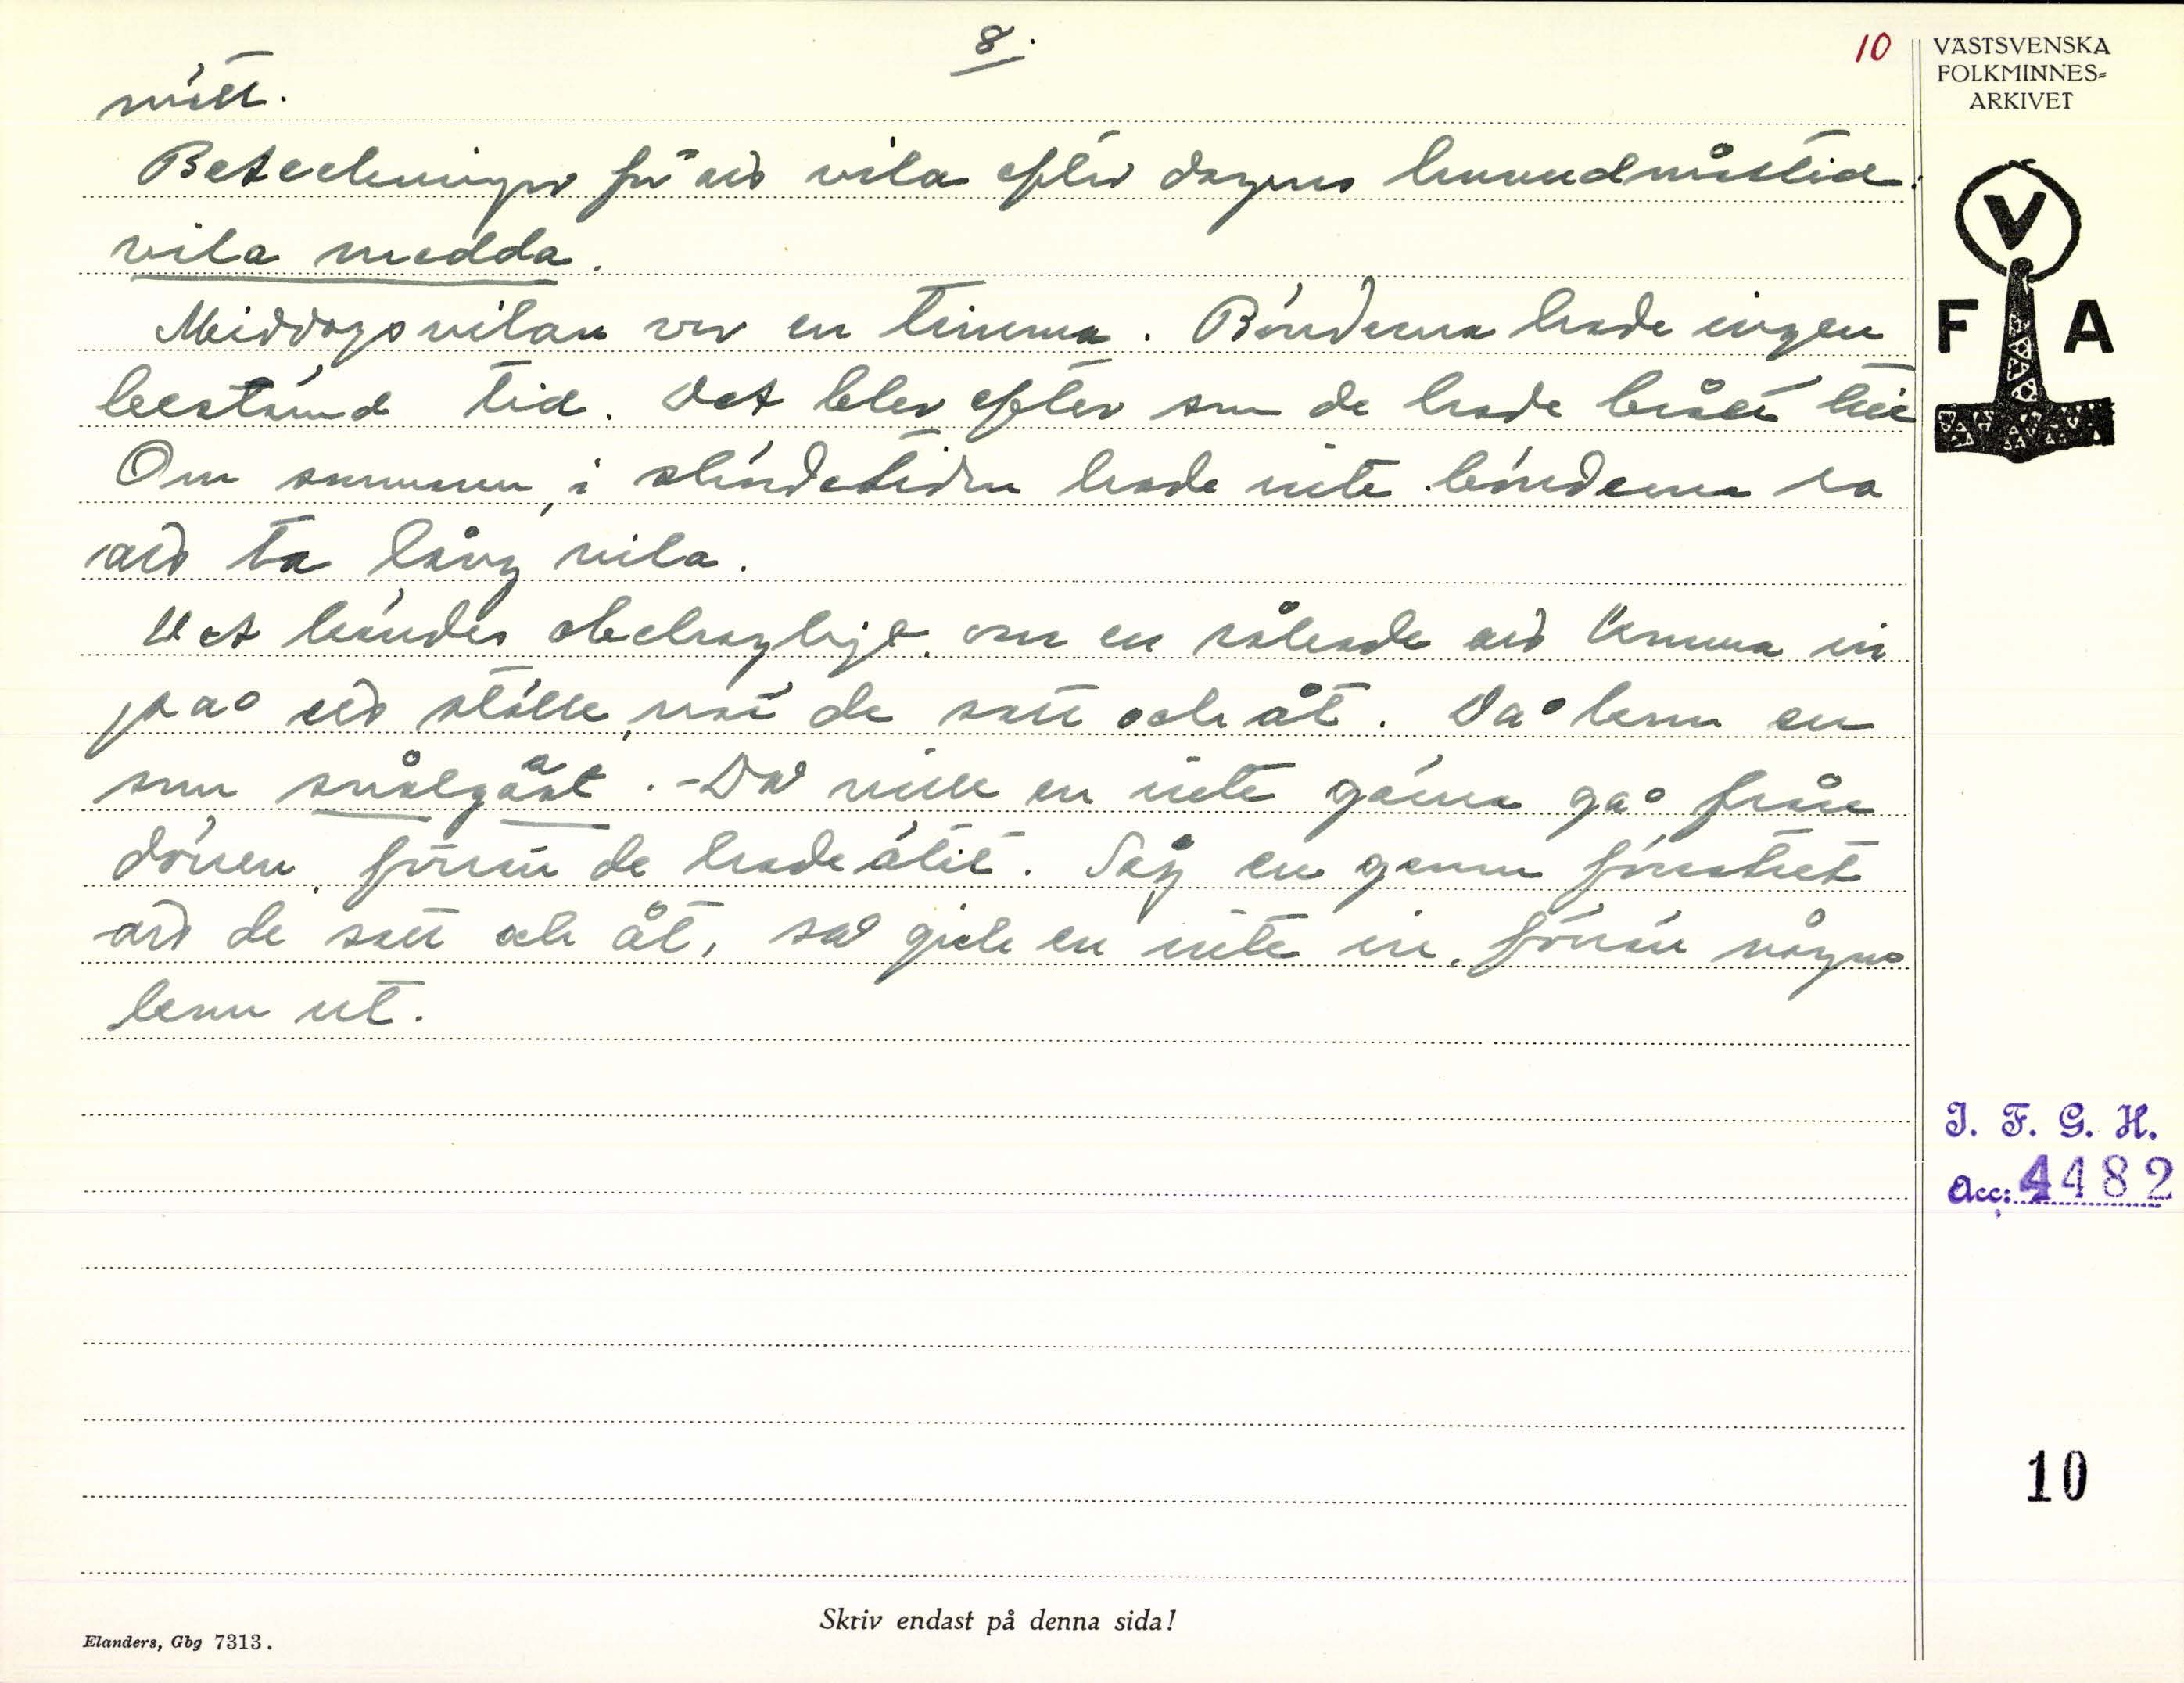 8.
10
mätt.
Beteckningar för att vila efter dagens huvudmåltid.
vila medda.
Middagsvilan var en timma. Bönderna hade ingen
bestämd tid. Det blev efter som de hade brått te
Om sommaren, i slåndetiden hade inte bönderna ro
att ta lång vila.
Det händer obehagligt, om en råkade att komma in
på ett ställe, när de satt och åt. Då kom en
som snålgäst. - Då ville en inte gärna gå från
dörren, förrän de hade ätit. Såg en genom fönstret
att de satt och åt, så gick en inte in, förrän någon
kom ut.
VÄSTSVENSKA
FOLKMINNES-
ARKIVET
V
F A
I. F. G. H.
Acc: 4482
10
Skriv endast på denna sida!
Elanders, Gbg 7313.